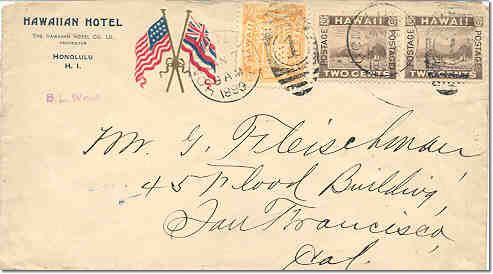 HAWAIIAN HOTEL
THE HAWAIIAN HOTEL CO. LD.
PROPRIETOR
HONOLULU
H. I.
1899
HAWAII
POSTAGE
POSTAGE
TWO CENTS
HAWAII
POSTAGE
POSTAGE
TWO CENTS
Mr. G. Fleischman
45 Flood Building
San Francisco,
Cal.